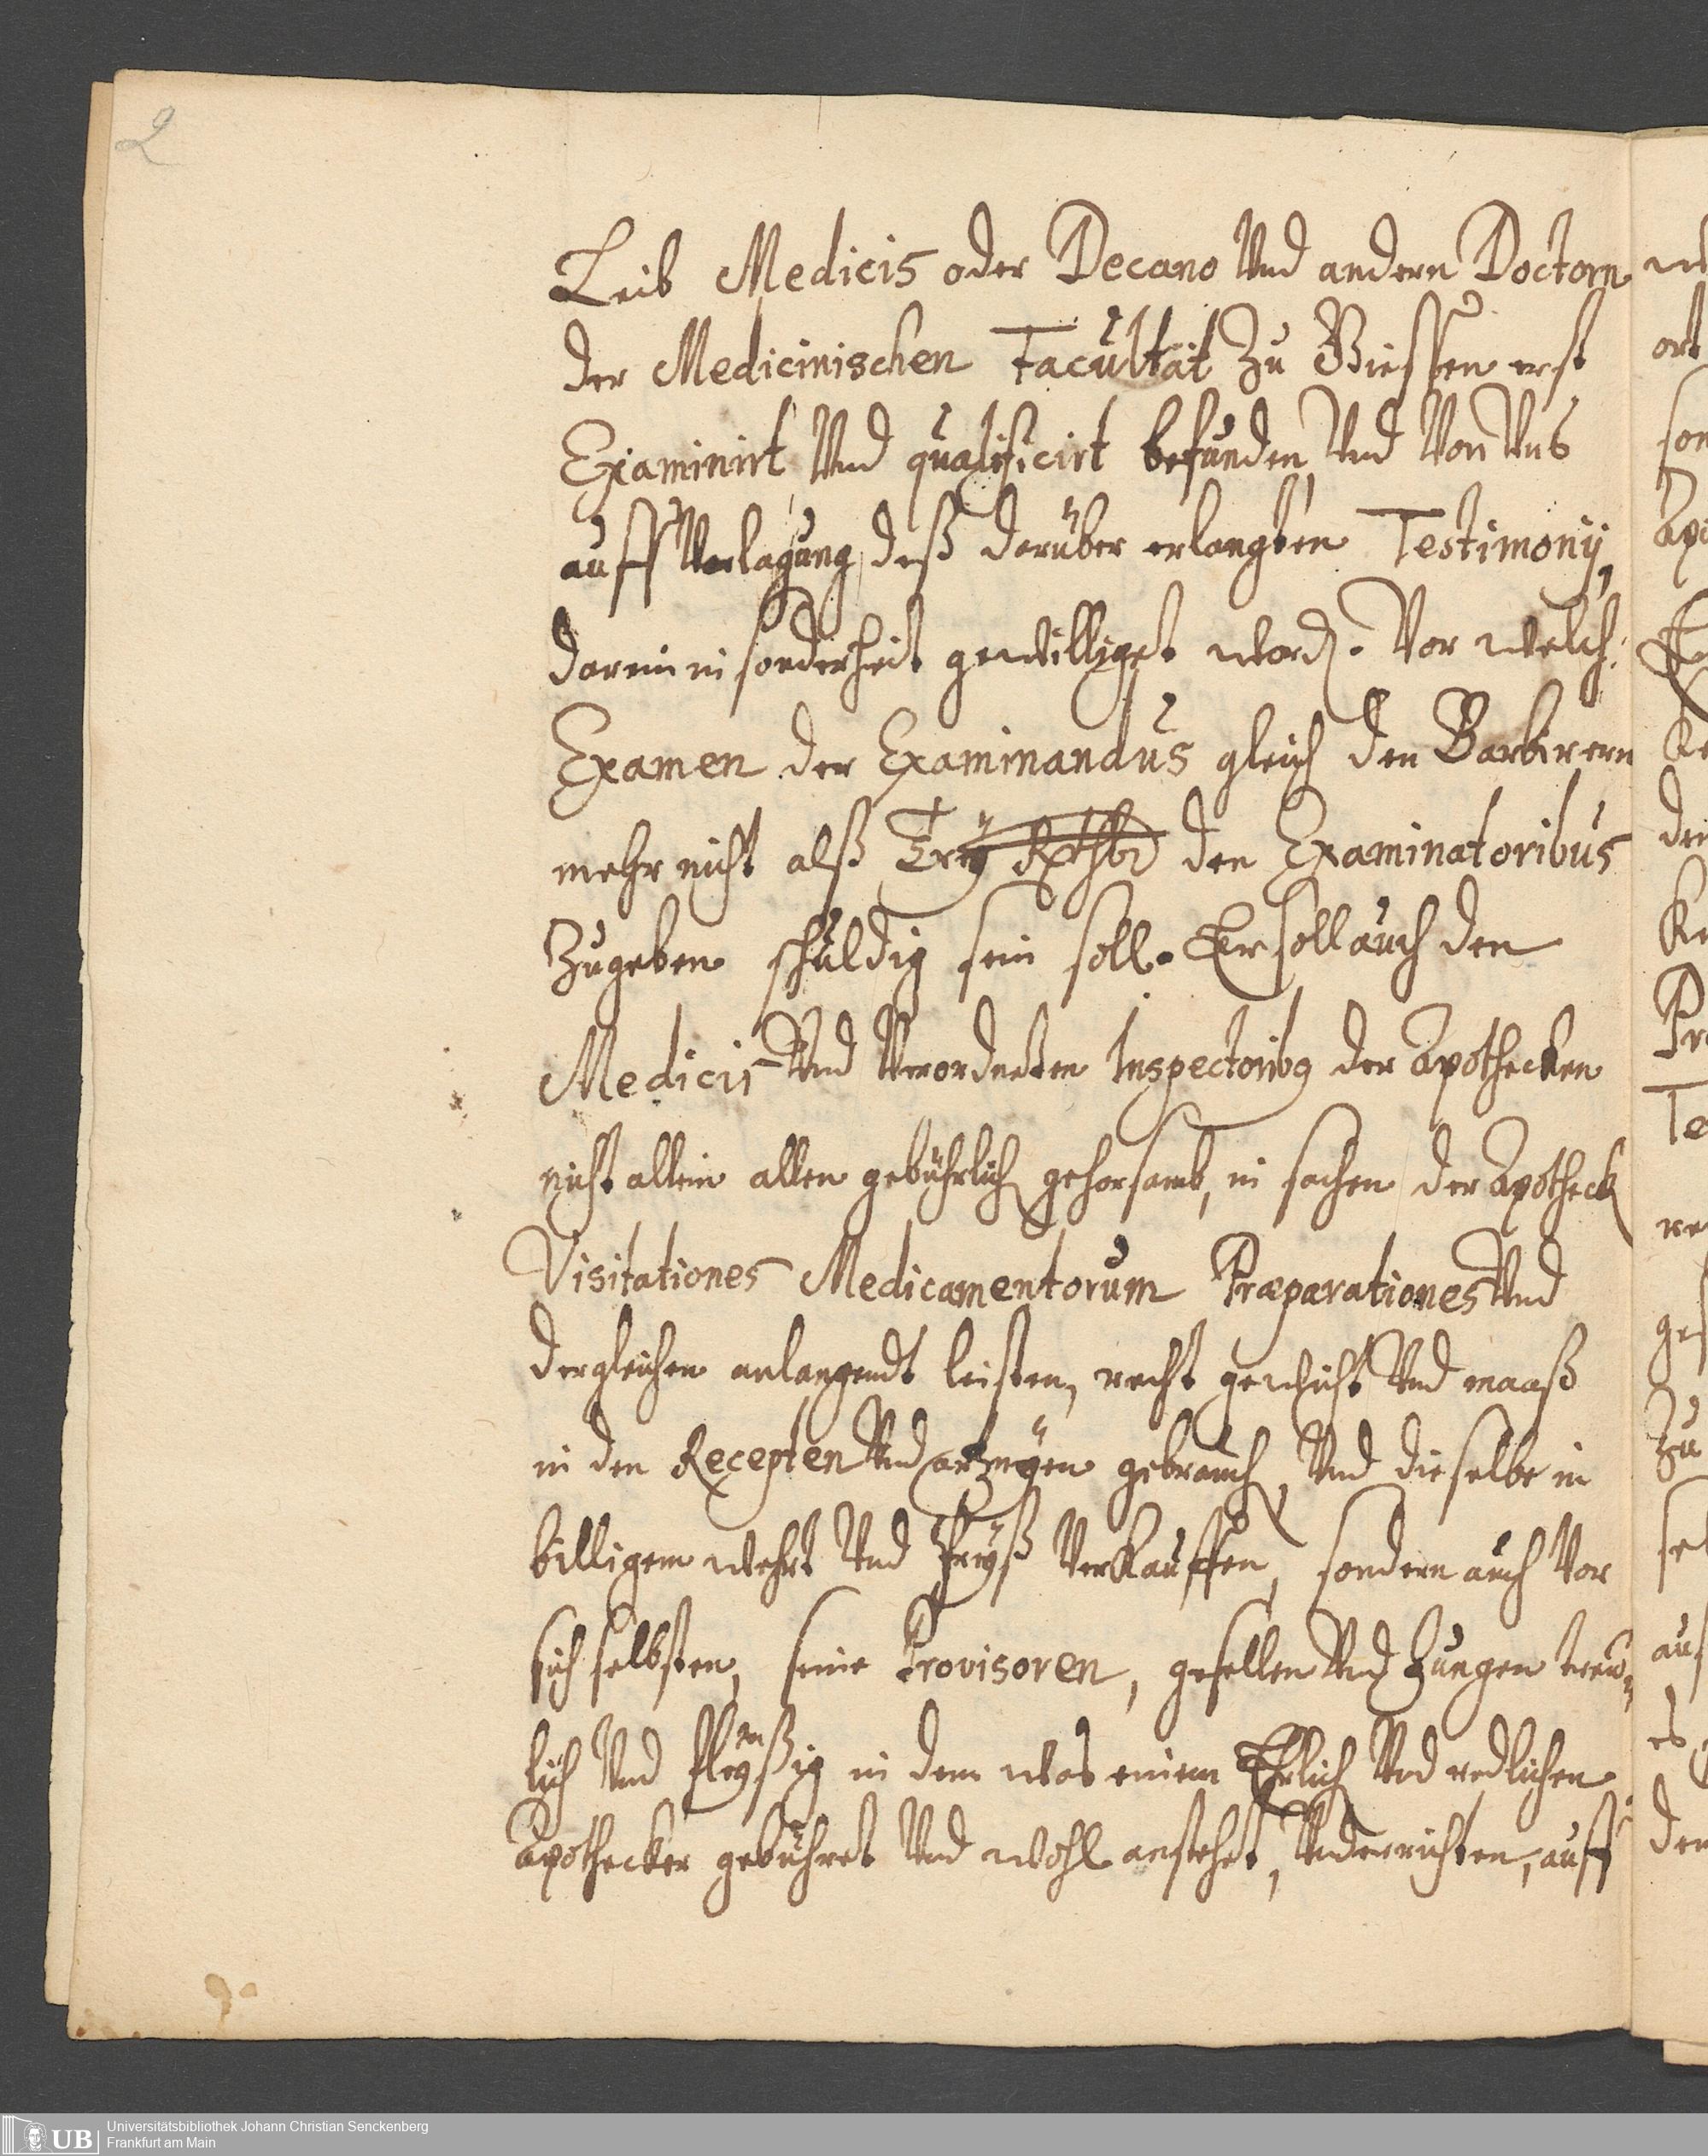 2
Leib Medicis oder Decano Vnd andern Doctorn
der Medicinischen Facultät Zu Giessen erst
Examinirt Vnd qualificirt befunden, Vnd Von Vns
auff Vorlagung deß darüber erlangten Testimonij,
darein in sonderheit gewilliget word. Vor welch:
Examen der Examinandus gleich den Barbirern
mehr nicht alß Trey Rthlr den Examinatoribus
Zugeben schuldig sein soll. Er soll auch den
Medicis Vnd Verordneten Inspectorib9 der Apothecken
nicht allein allen gebührlich gehorsamb, in sachen der Apotheck
Visitationes Medicamentorum Præparationes Vnd
dergleichen anlangendt leisten, recht gewicht Vnd maaß
in den Recepten Vnd artzneyen gebrauch, Vnd dieselbe in
billigem wehrt Vnd Preyß Verkauffen, sondern auch Vor
sich selbsten, seine Provisoren, gesellen Vnd Jungen treu,
lich Vnd fleyßig in dem was einem Ehrlich Vnd redlichen
Apothecker gebühret Vnd wohl anstehet, Vnderrichten, auff
UB Universitätsbibliothek Johann Christian Senckenberg
Frankfurt am Main